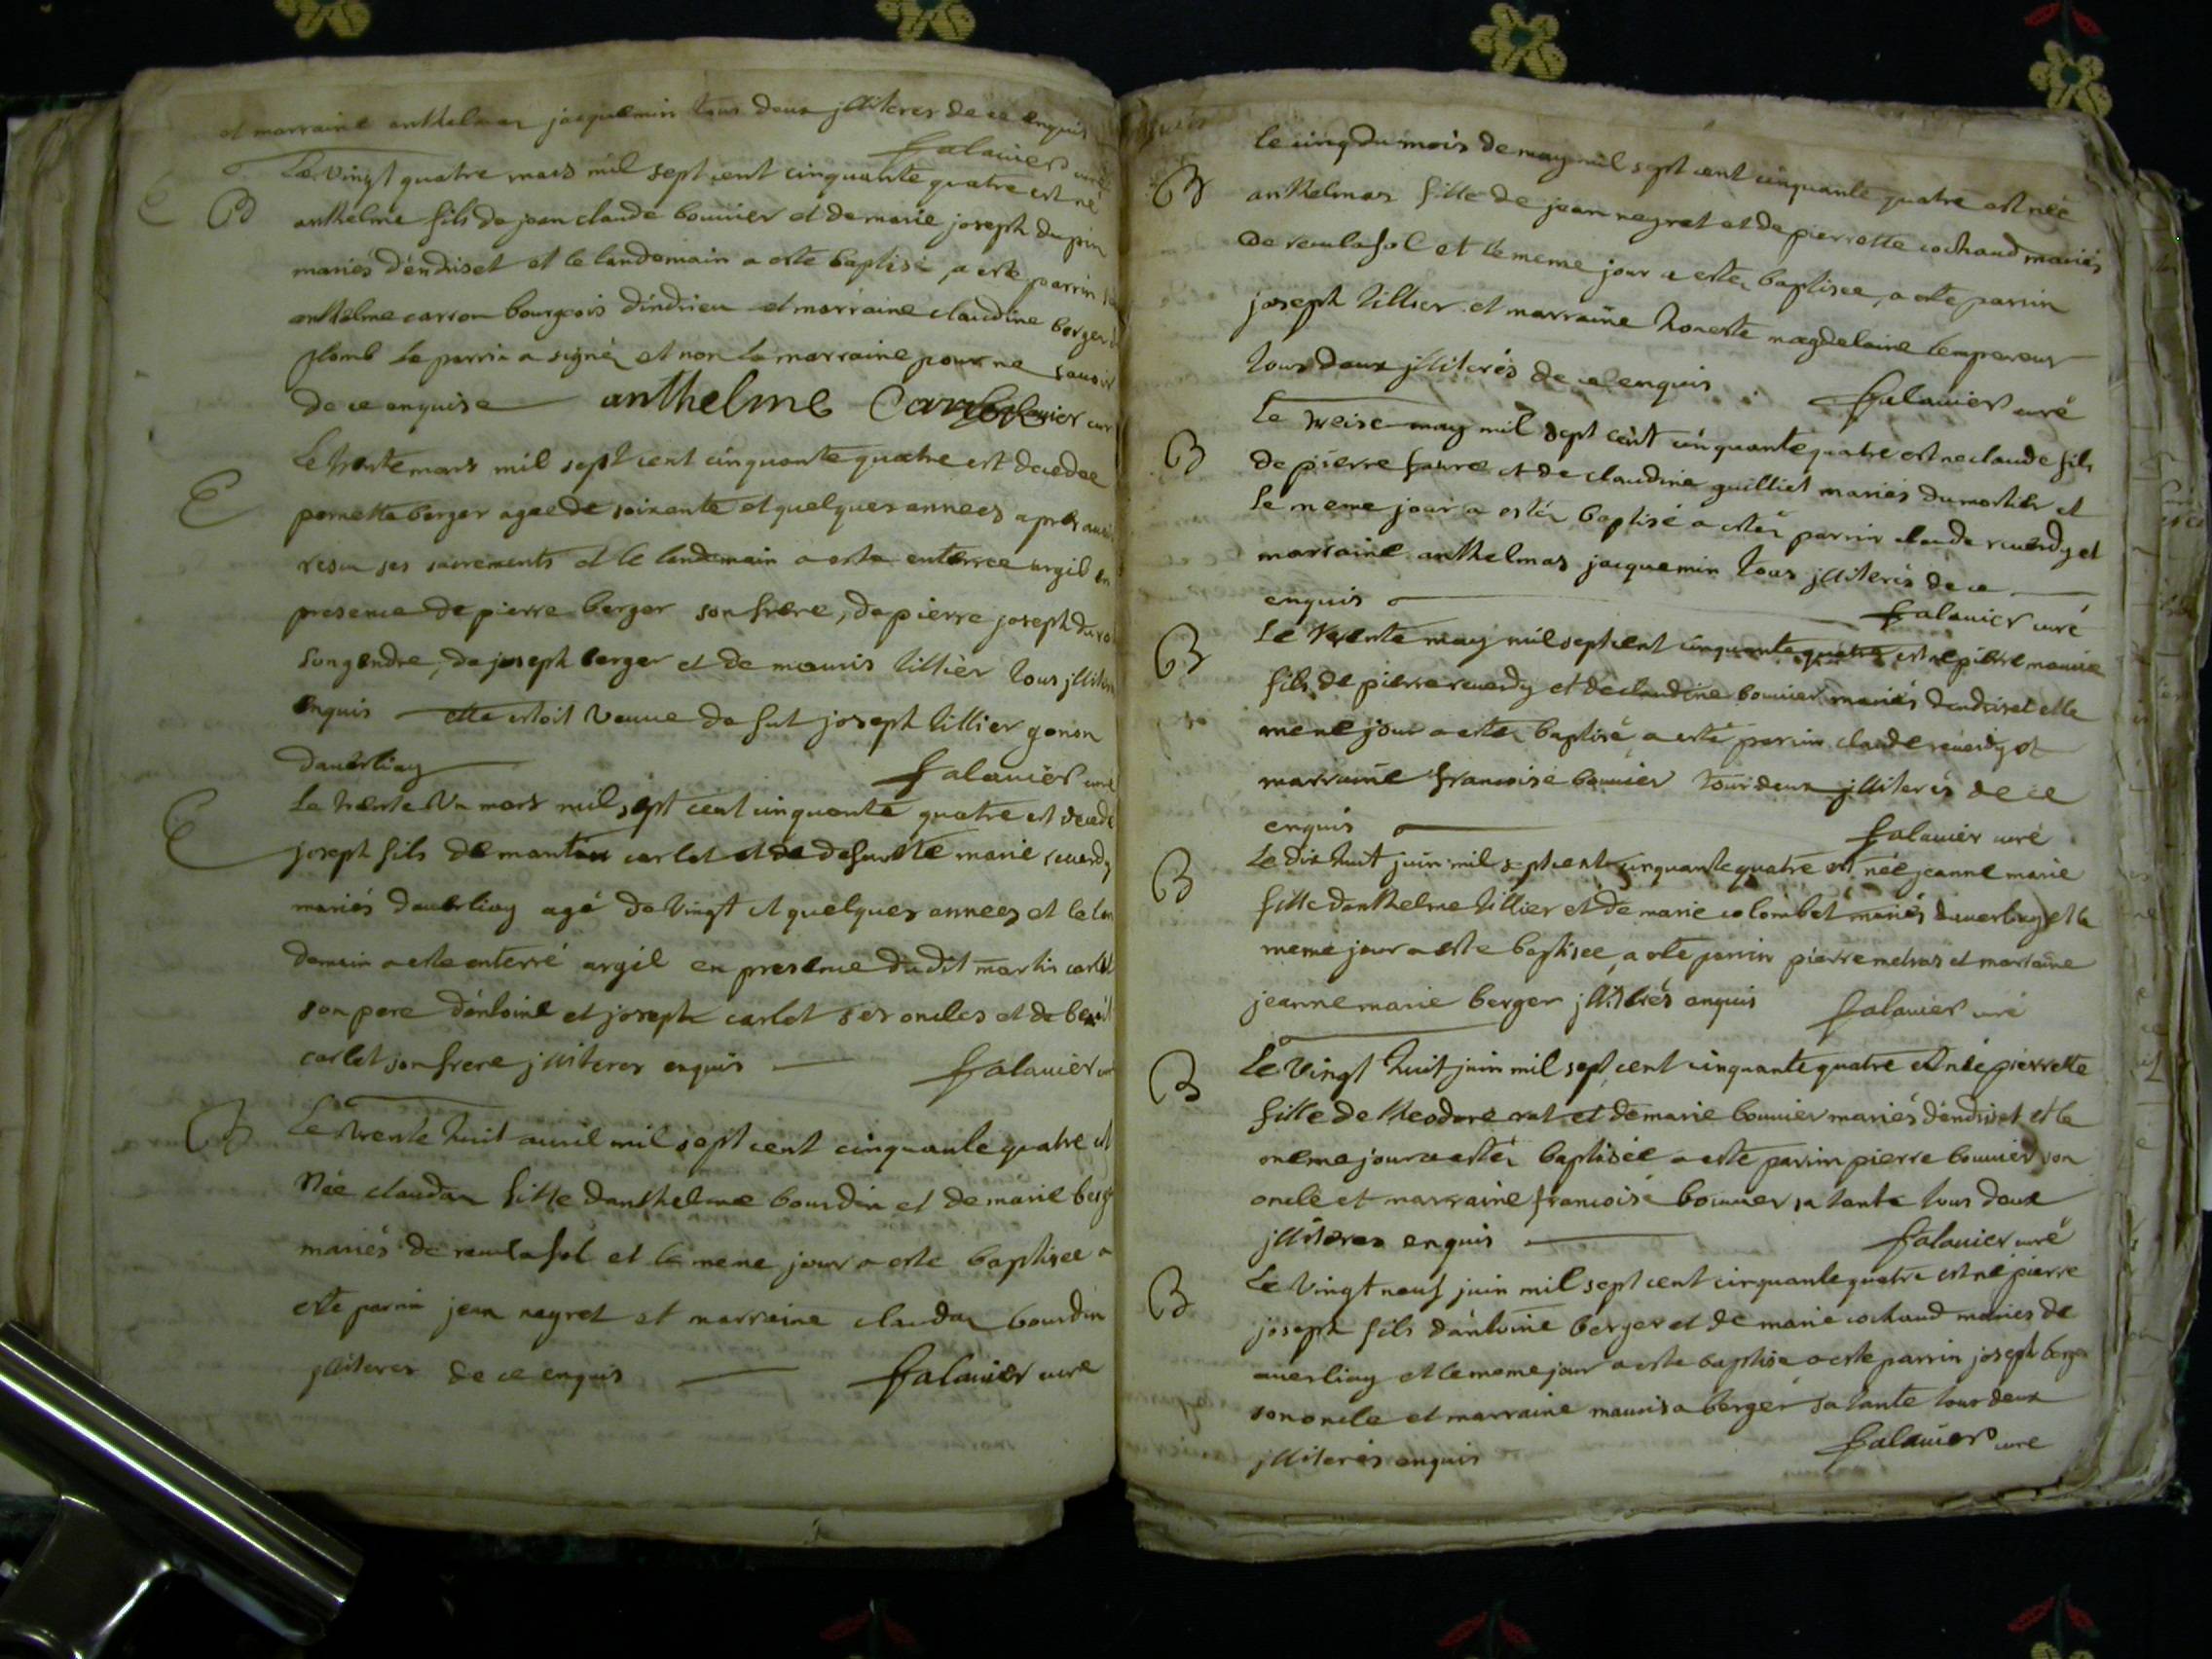 et marraine anthelmaz jacquemin tous deux jlliteres de ce enquis
falavier curé
Le vingt quatre mars mil sept cent cinquante quatre est né
B
anthelme fils de jean claude bouvier et de marie joseph dupin
mariés d'endriset et le landemain a esté baptisé, a esté parrin
anthelme carron bourgeois d'indrieu et marraine claudine berger
plomb le parrin a signé et non la marraine pour ne scavoir
de ce enquise anthelme falavier cur
Le trente mars mil sept cent cinquante quatre est decedee
E
pernette berger agee de soixante et quelques annees apres avoir
resu ses sacrements et le landemain a esté enterree argil en
presence de pierre berger son frere, de pierre joseph
son gendre, de joseph berger et de mouris tillier tous jlliteres
enquis elle estoit veuve de fut joseph tillier gonon
daverliay
falavier curé
Le trente un mars mil sept cent cinquante quatre est decedé
E
joseph fils de carlet et de defuncte marie reverdy
mariés daverliay agé de vingt et quelques annees et le lan
demain a esté enterré argil en presence dudit martin carlet
son pere d'entoine et joseph carlet ses oncles et de
carlet son frere jlliteres enquis
falavier
B
Le trente huit avril mil sept cent cinquante quatre est
Née claudaz fille danthelme bourdin et de marie berger
mariés de remlasol et le meme jour a esté baptisee a
esté parrin jean neyret et marraine claudaz bourdin
jlliteres de ce enquis falavier curé
le cinq du mois de may mil sept cent cinquante quatre est née
B
anthelmaz fille de jean neyret et de pierrette cochaud mariés
de remlasol et le meme jour a esté baptisee, a esté parrin
joseph tillier et marraine honeste magdelaine lempereur
tous deux jlliterés de ce enquis falavier curé
Le treise may mil sept cent cinquante quatre est né claude fils
B
de pierre favre et de claudine guilliet mariés du mortier et
le meme jour a esté baptisé a esté parrin claude reverdy et
marraine anthelmaz jacquemin tous jlliterés de ce
enquis falavier curé
Le trente may mil sept cent cinquante quatre est né pierre
B
fils de pierre reverdy et de claudine bouvier mariés dendriset et le
meme jour a esté baptisé a esté parrin claude reverdy et
marraine francoise bouvier tous deux jlliterés de ce
enquis falavier curé
Le dix huit juin mil sept cent cinquante quatre est née jeanne marie
B
fille danthelme tillier et de marie colombet mariés daverliay et le
meme jour a esté baptisee, a esté parrin pierre et marraine
jeanne marie berger jlliterés enquis falavier curé
B
Le vingt huit juin mil sept cent cinquante quatre est née pierrette
fille de theodore rat et de marie bouvier mariés d'endriset et le
meme jour a esté baptisée a esté parrin pierre bouvier son
oncle et marraine francoise bouvier sa tante tous deux
jlliteres enquis falavier curé
Le vingt neuf juin mil sept cent cinquante quatre est né pierre
B
joseph fils d'antoine berger et de marie cochaud mariés de
averliay et le meme jour a esté baptisé a esté parrin joseph berger
son oncle et marraine maurisa berger sa tante tous deux
jlliterés enquis falavier curé